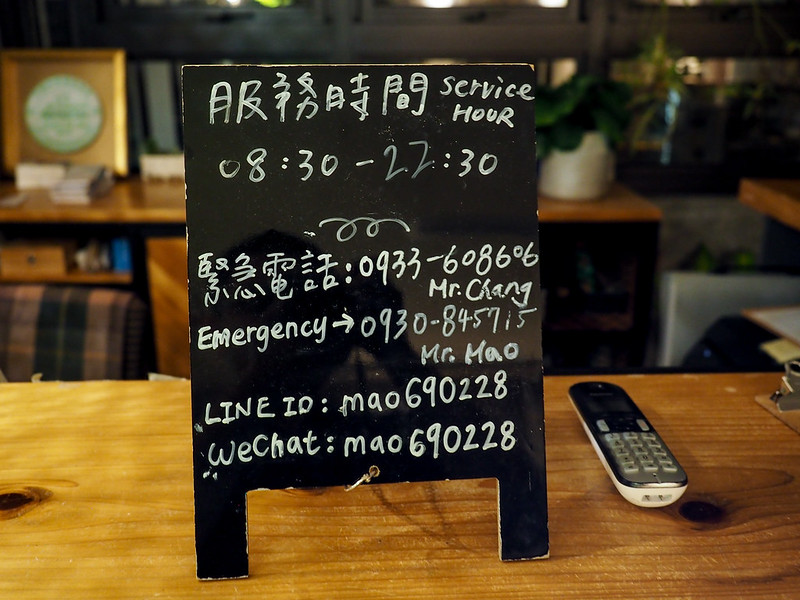 服務時間 Service HOUR
08:30-22:30
緊急電話:0933-608606
Mr.Chang
Emergency→0930-845715
Mr. Mao
LINE ID: mao690228
WeChat: mao690228